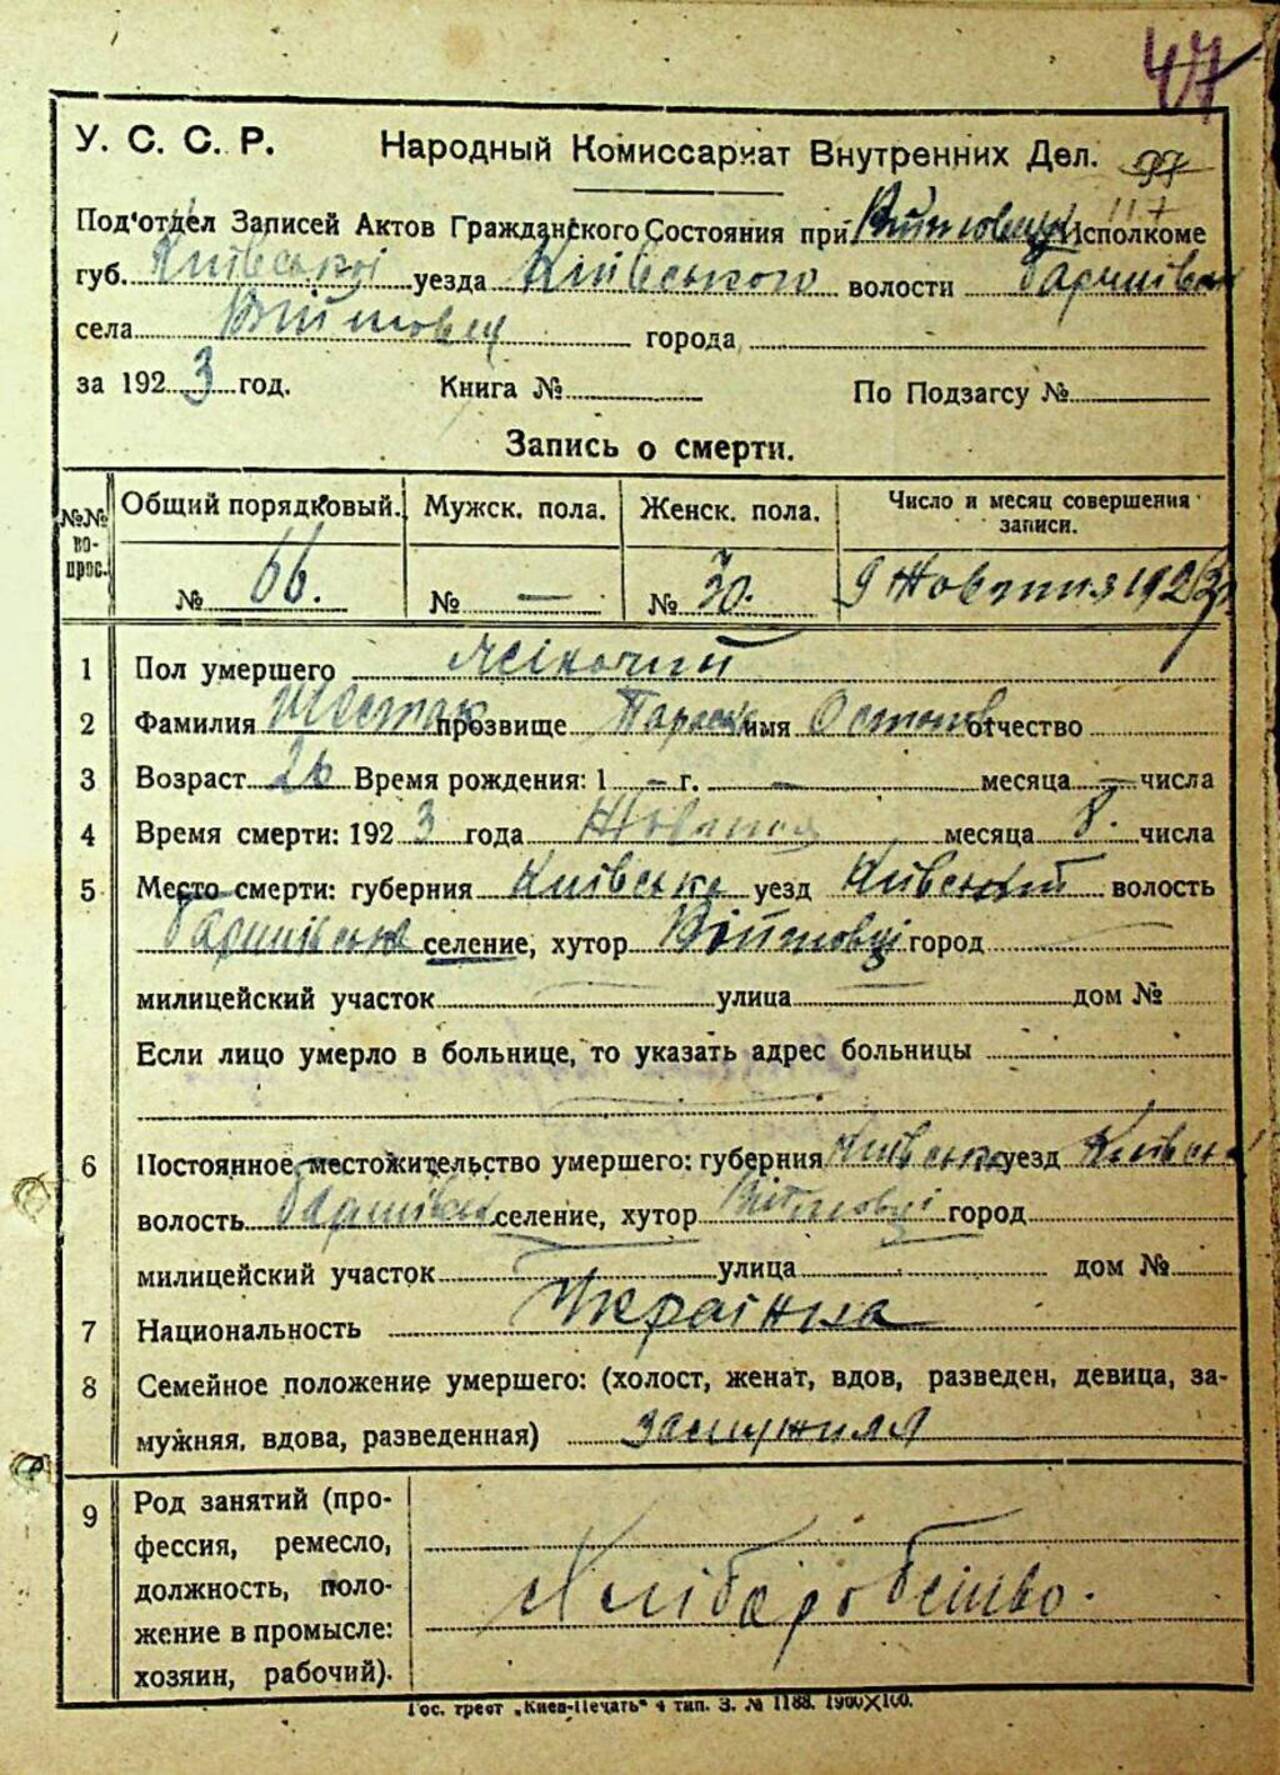 47
У. С. С. Р. Народный Комиссариат Внутренних Дел. 97
117
Под'отдел Записей Актов Гражданского Состояния при Исполкоме
губ. Київської уезда Київського волости Баришівськ
села Війтовці города
за 1923 год. Книга № По Подзагсу №
Запись о смерти.
№№ во-прос. Общий порядковый. Мужск. пола. Женск. пола. Число и месяц совершения записи.
№ 66. № — № 30. 9 Жовтня 1923
1 Пол умершего жіночий
2 Фамилия Шостак прозвище Параск имя Остапов отчество
3 Возраст 26 Время рождения: 1 – г. – месяца – числа
4 Время смерти: 1923 года Жовтня месяца 8. числа
5 Место смерти: губерния Київська уезд Київський волость
Баришівська селение, хутор Війтовці город
милицейский участок улица дом №
Если лицо умерло в больнице, то указать адрес больницы
6 Постоянное местожительство умершего: губерния Київська уезд Київськ
волость Баришівськ селение, хутор Війтовці город
милицейский участок улица дом №
7 Национальность Українка
8 Семейное положение умершего: (холост, женат, вдов, разведен, девица, за-
мужняя, вдова, разведенная) замужняя
9 Род занятий (про-
фессия, ремесло,
должность, поло-
жение в промысле:
хозяин, рабочий).
Хліборобство.
Гос. трест „Киев-Печать" 4 тип. З. № 1188. 1900✕100.